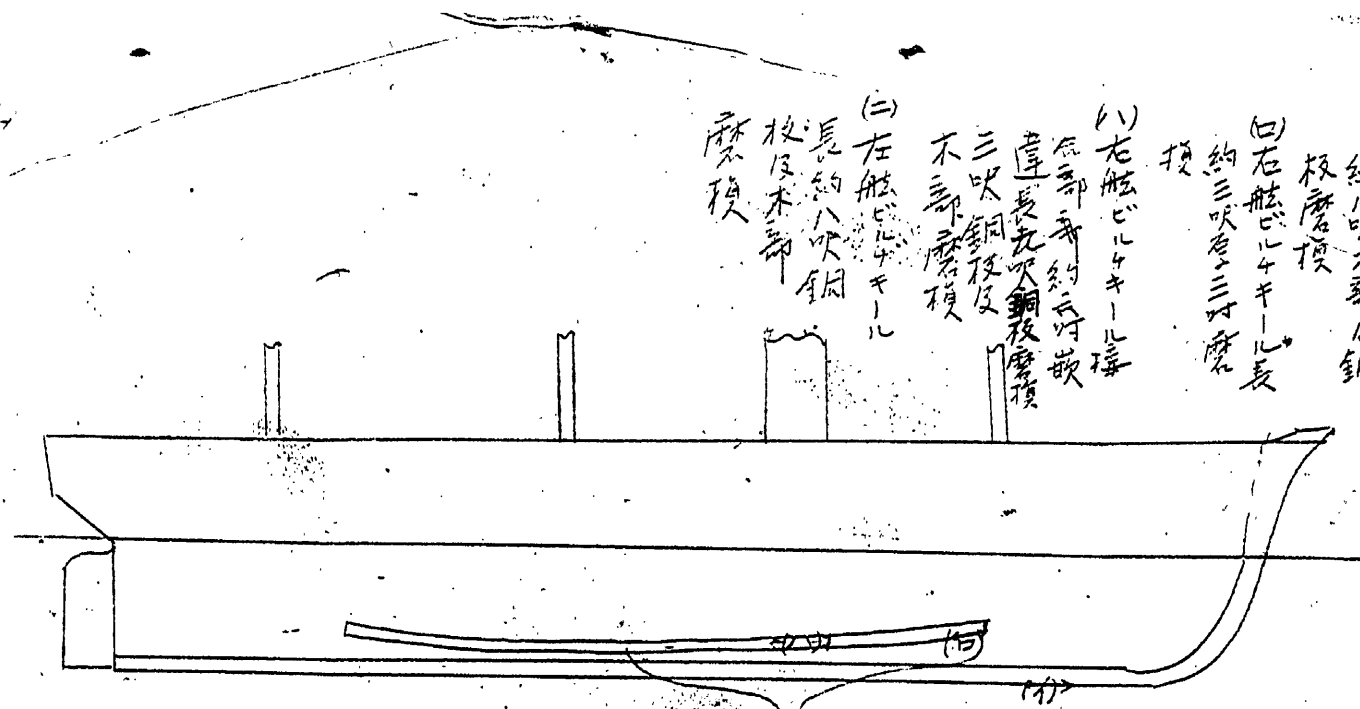 板磨損
(ロ)右舷ビルヂキール長
約三呎厚ミ三吋磨
損
(ハ)右舷ビルヂキール接
合部ヲ約六吋嵌
違長九呎銅板磨損
三呎銅板及
木部磨損
(ニ)左舷ビルヂキール
長約八呎銅
板及木部
磨損
(ロ)
(イ)